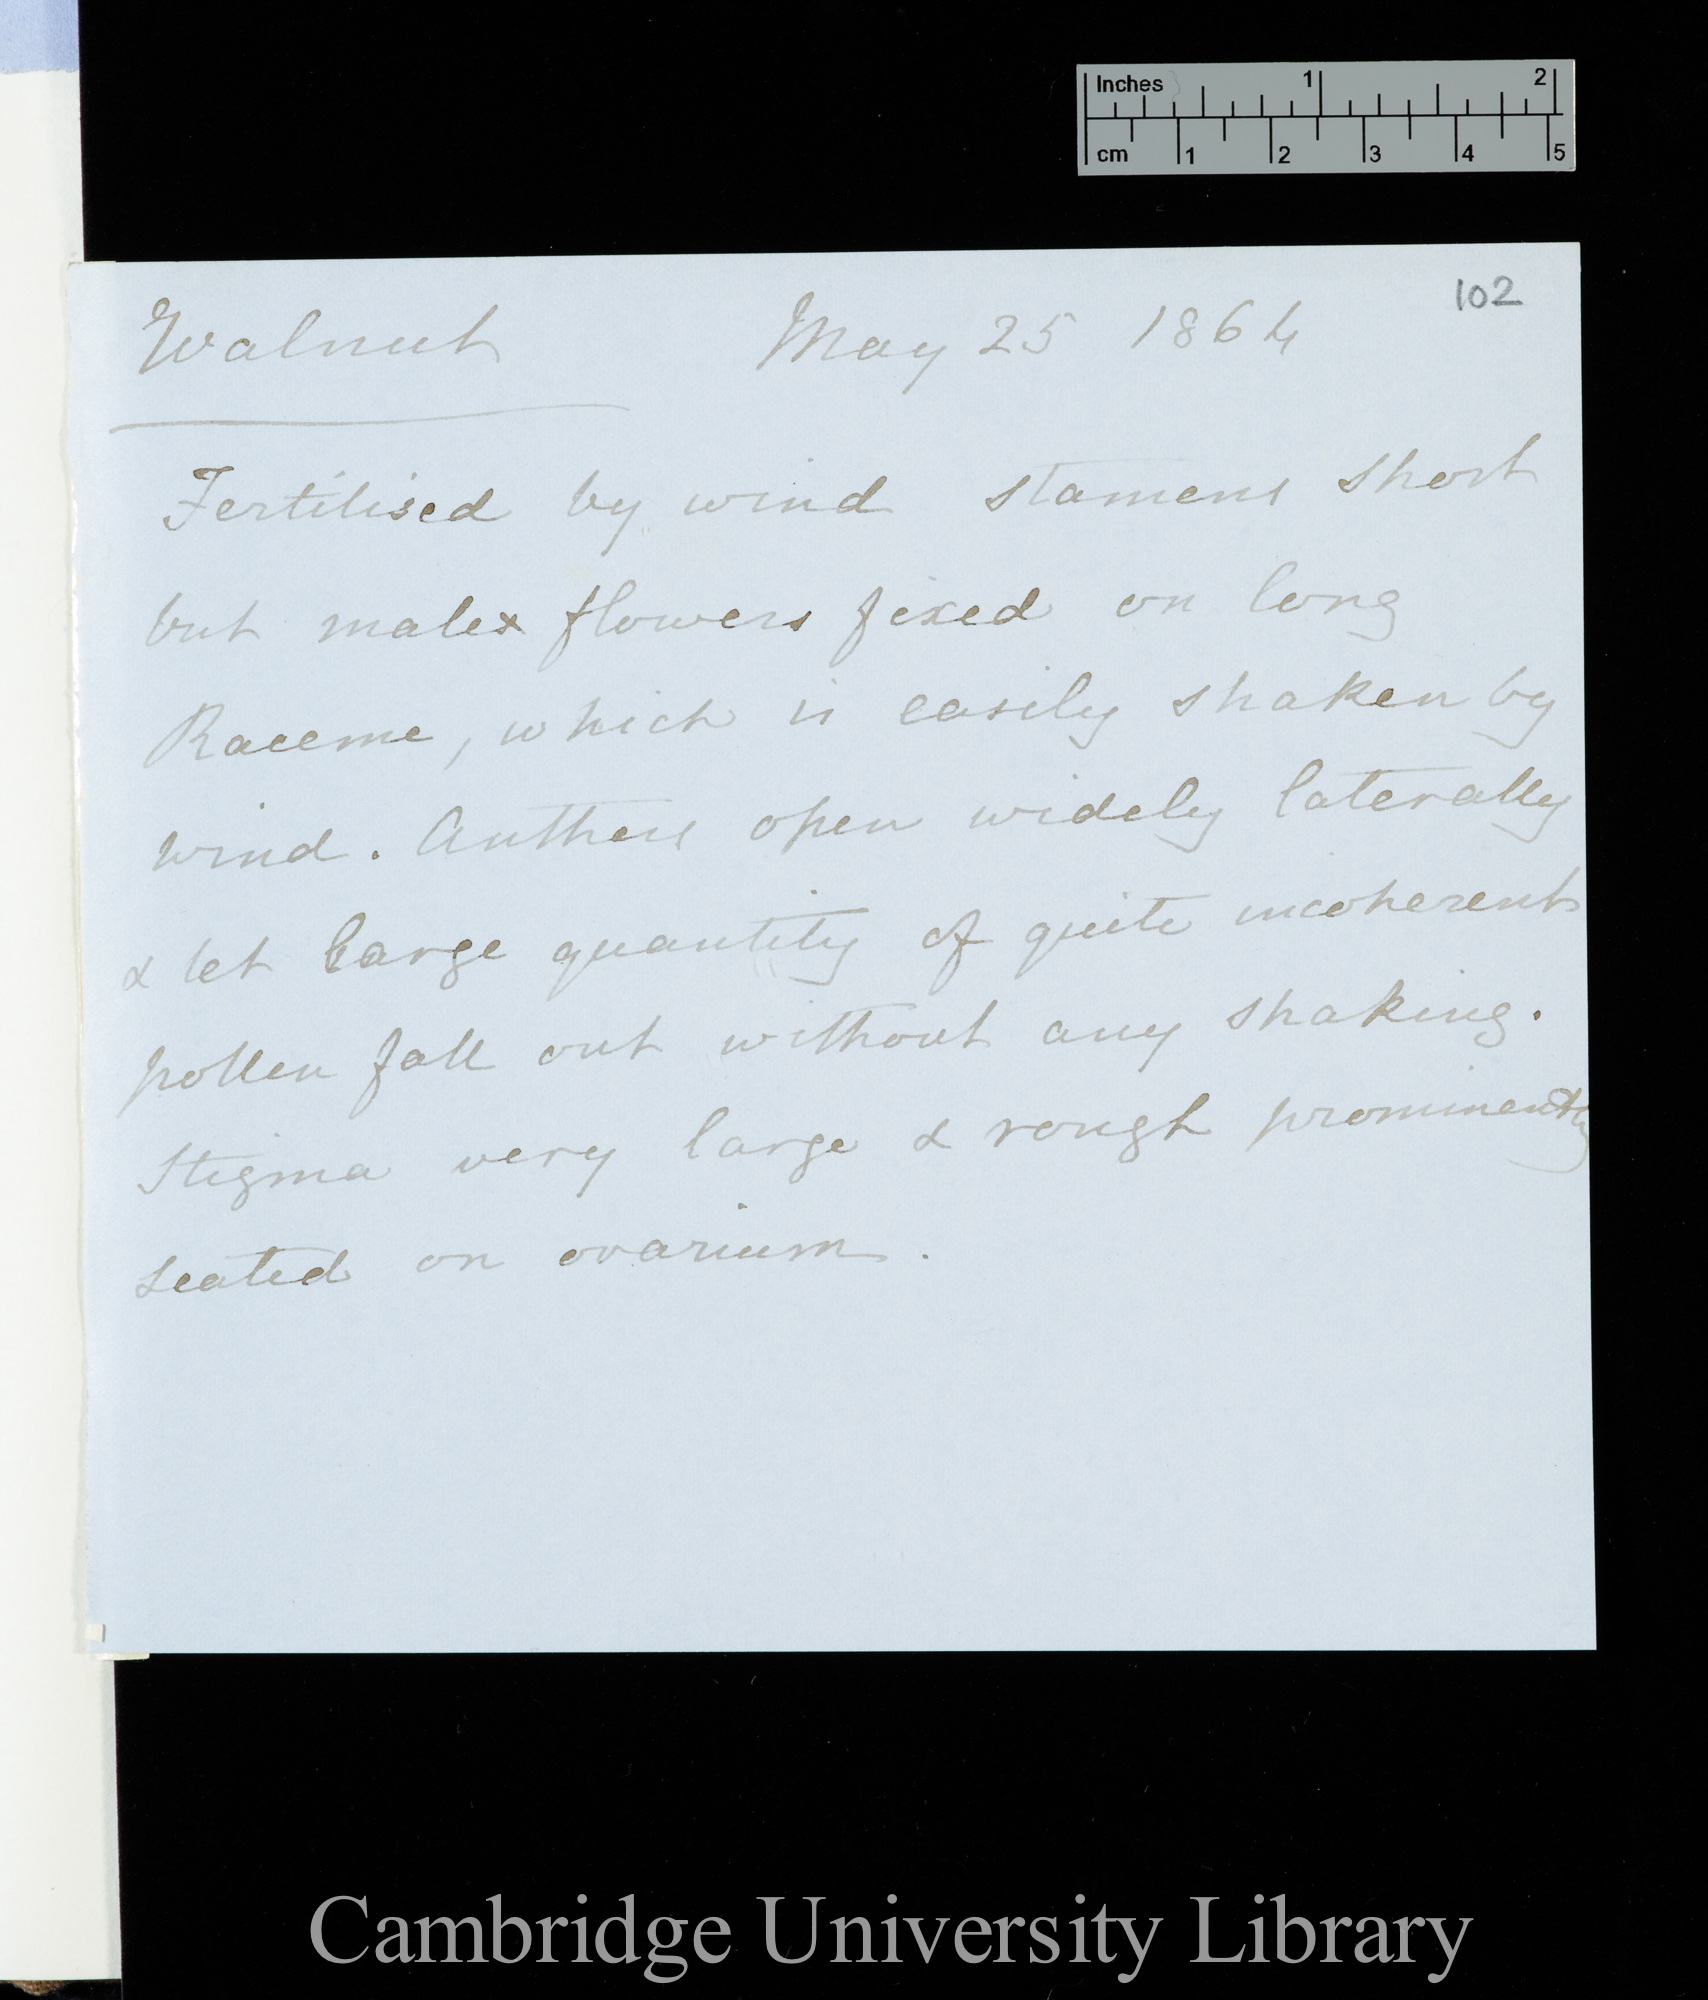 Inches 1 2
cm 1 2 3 4 5
102
Walnut May 25 1864
Fertilised by wind stamens short
but male flowers fixed on long
Raceme, which is easily shaken by
wind. Anthers open widely laterally
& let large quantity of quite incoherent
pollen fall out without any shaking.
Stigma very large & rough prominently
seated on ovarium.
Cambridge University Library